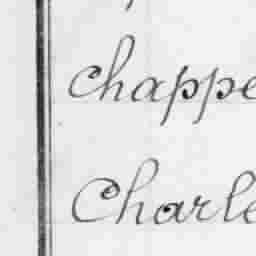 chappe
Charle